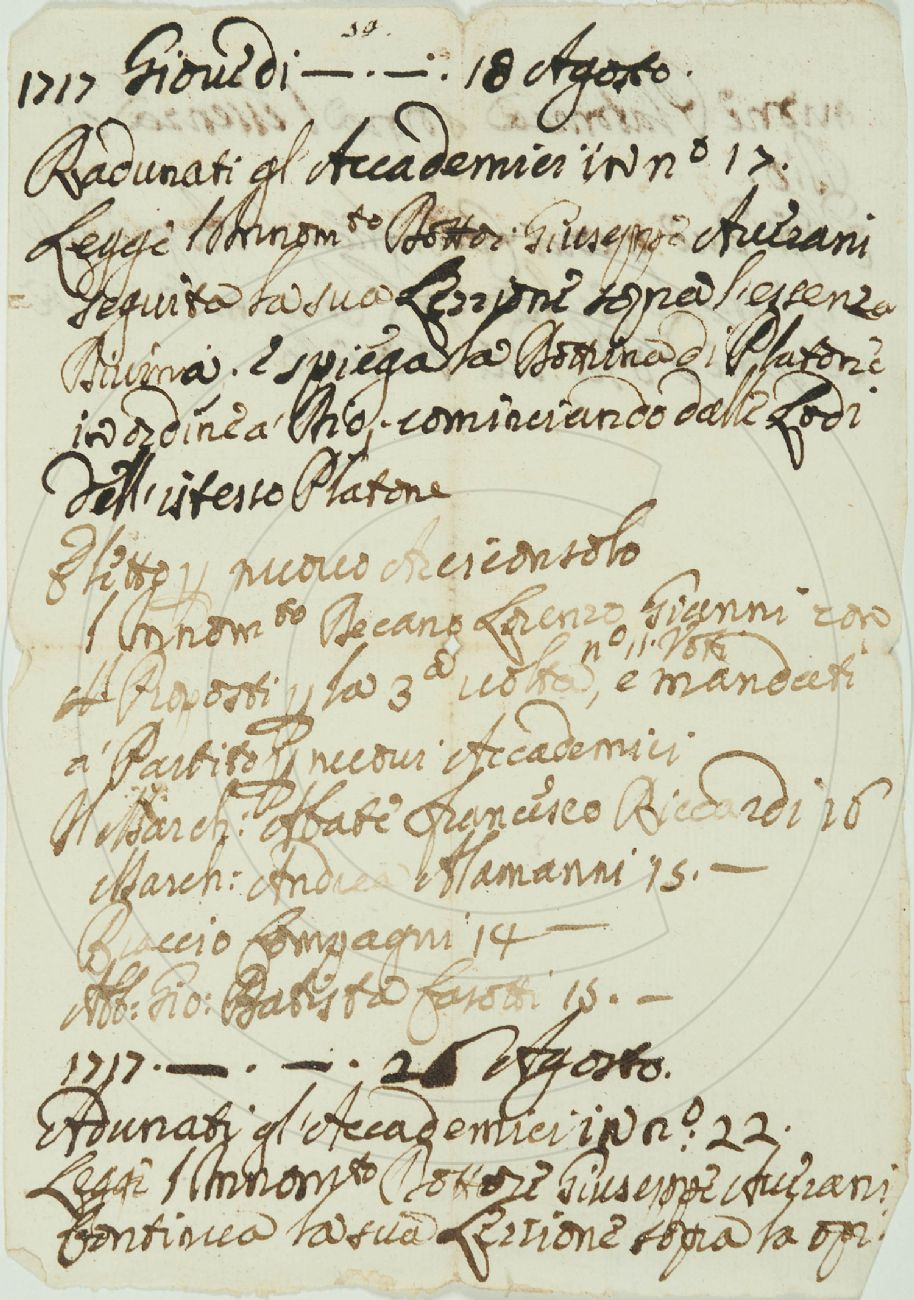 59.
1717 Giovedi —.—. 18 Agosto.
Radunati gl' Accademici in nº 17.
Legge l'Innomto Dottor Giuseppe Averani
seguita la sua Lezzione sopra l'essenza
Divina. e spiega la Dottrina di Platone
in ordine a Dio, cominciando dalle Lodi
dell' istesso Platone
Eletto p nuovo Arciconsolo
l'Innomto Decano Lorenzo Gianni con
nº 11. Voti
Proposti p la 3a volta, e mandati
a' Partito p nuovi Accademici
Il March: Abate Francesco Riccardi 16
March: Andrea Alamanni 15.—
Braccio Compagni 14—
Abb: Gio: Batista Fasotti 15.—
1717.—.—. 26 Agosto.
Adunati gl' Accademici in nº: 22.
Legge l'Innomto Dottore Giuseppe Averani
Continua la sua Lezzione sopra la opi: